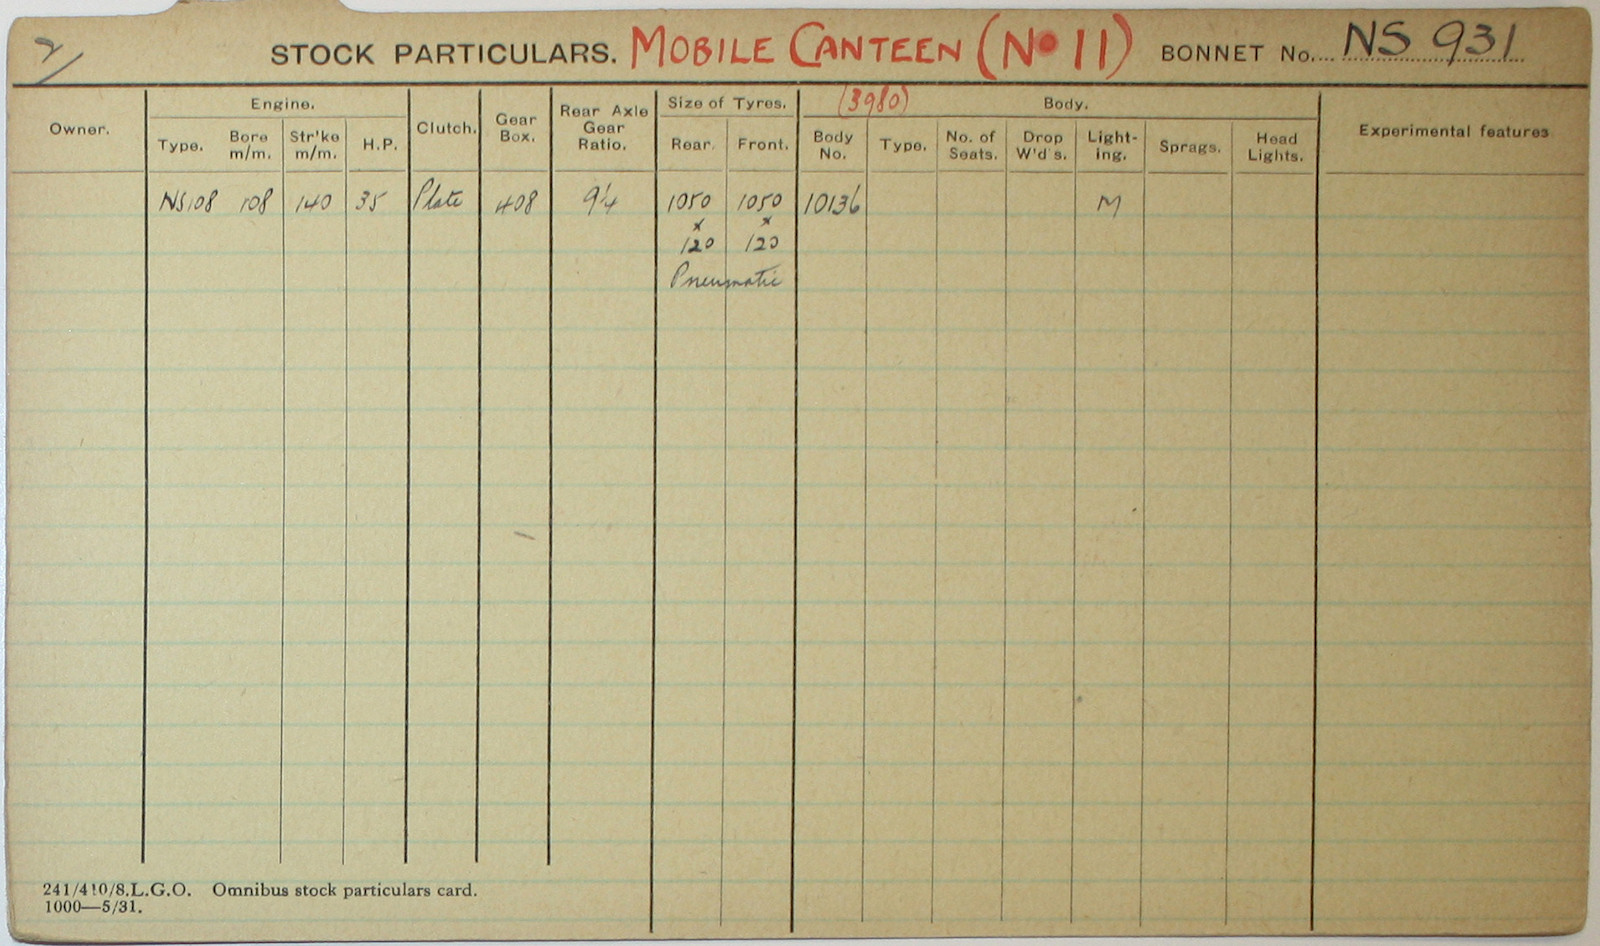 2/
STOCK PARTICULARS. MOBILE CANTEEN (No 11) BONNET No.... NS 931
Owner. Engine. Clutch. Gear Box. Rear Axle Gear Ratio. Size of Tyres. (3980) Body. Experimental features
Type. Bore m/m. Str'ke m/m. H.P. Rear. Front. Body No. Type. No. of Seats. Drop W'd's. Light-ing. Sprags. Head Lights.
NS108 108 140 35 Plate 408 9¼ 1050 1050 10136 M
x x
120 120
Pneumatic
241/410/8.L.G.O. Omnibus stock particulars card.
1000—5/31.